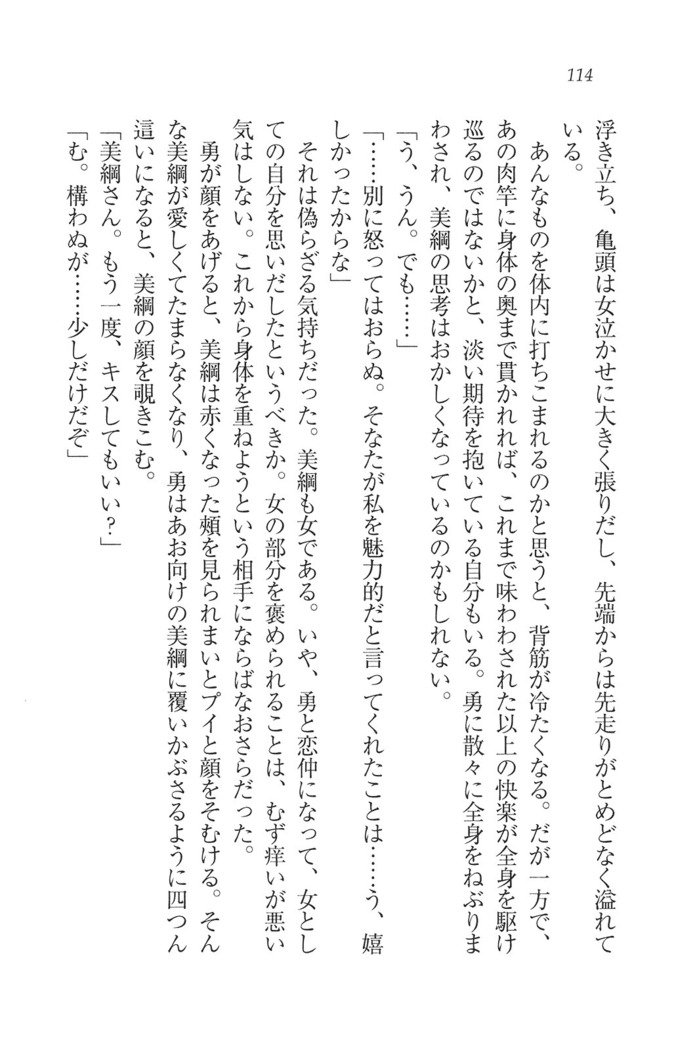 114
浮き立ち、亀頭は女泣かせに大きく張りだし、先端からは先走りがとめどなく溢れて
いる。
　あんなものを体内に打ちこまれるのかと思うと、背筋が冷たくなる。だが一方で、
あの肉竿に身体の奥まで貫かれれば、これまで味わわされた以上の快楽が全身を駆け
巡るのではないかと、淡い期待を抱いている自分もいる。勇に散々に全身をねぶりま
わされ、美綱の思考はおかしくなっているのかもしれない。
「う、うん。でも……」
「……別に怒ってはおらぬ。そなたが私を魅力的だと言ってくれたことは……う、嬉
しかったからな」
　それは偽らざる気持ちだった。美綱も女である。いや、勇と恋仲になって、女とし
ての自分を思いだしたというべきか。女の部分を褒められることは、むず痒いが悪い
気はしない。これから身体を重ねようという相手にならばなおさらだった。
　勇が顔をあげると、美綱は赤くなった頬を見られまいとプイと顔をそむける。そん
な美綱が愛しくてたまらなくなり、勇はあお向けの美綱に覆いかぶさるように四つん
這いになると、美綱の顔を覗きこむ。
「美綱さん。もう一度、キスしてもいい？」
「む。構わぬが……少しだけだぞ」